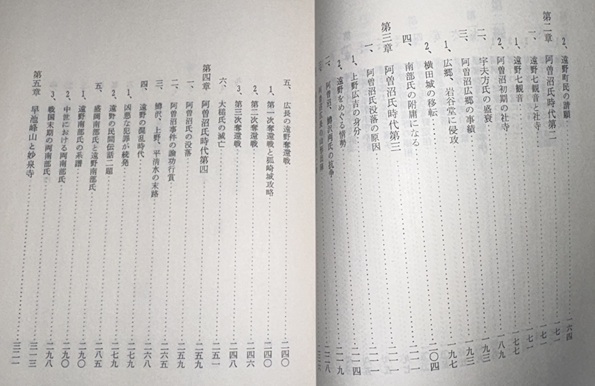 2、遠野町民の請願 一六四
第二章 阿曽沼氏時代第二 一七一
一、遠野七観音と社寺 一七一
1、遠野七観音 一七七
2、阿曽沼初期の社寺 一七七
二、宇夫方氏の盛衰 一八九
三、阿曽沼広郷の事積 一九三
1、広郷、岩谷堂に侵攻 一九七
2、横田城の移転 二〇四
四、南部氏の附庸になる
第三章 阿曽沼氏時代第三 二一一
一、阿曽沼氏没落の原因
1、上野広吉の身分
2、遠野をめぐる情勢 二一九
二、阿曽沼、鱒沢両氏の抗争
五、広長の遠野奪還戦 二四〇
1、第一次奪還戦と狐崎城攻略 二四〇
2、第二次奪還戦 二四四
3、第三次奪還戦 二四八
六、大槌氏の滅亡 二五一
第四章 阿曽沼氏時代第四 二五九
一、阿曽沼氏の没落 二五九
二、阿曽沼事件の論功行賞
三、鱒沢、上野、平清水の末路
四、遠野の混乱時代 二六八
1、凶悪な犯罪が続発
2、遠野の民間伝話二題 二七九
五、盛岡南部氏と遠野南部氏 二八五
1、遠野南部氏の系譜 二九〇
2、中世における両南部氏 二九〇
3、戦国末期の両南部氏 二九八
第五章 早池峰山と妙泉寺 三一三
三二一